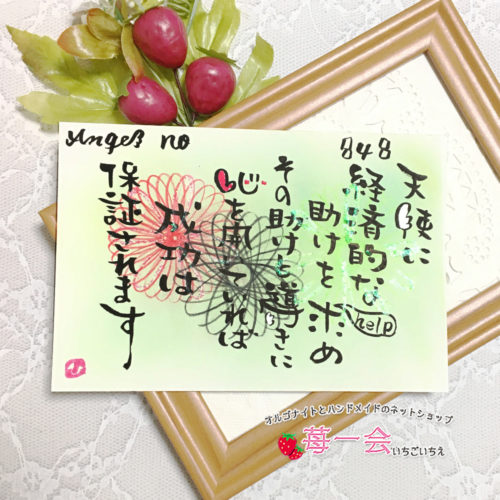 Angel no
848
天使に
経済的な
help
助けを求め
その助けと導きに
心を開いていれば
成功は
保証されます
ひ
オルゴナイトとハンドメイドのネットショップ
苺一会 いちごいちえ